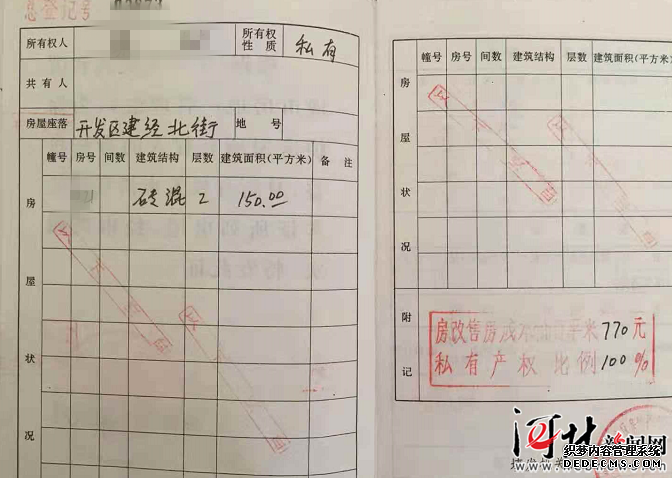 息登记号
所有权人
所有权性质
私有
共有人
房屋座落
开发区建经北街
地号
房屋状况
幢号 房号 间数 建筑结构 层数 建筑面积(平方米) 备注
砖混 2 150.00
以下空白
房屋状况
幢号 房号 间数 建筑结构 层数 建筑面积(平方米)
以下空白
附记
房改售房成本 米770元
私有产权比例100%
河北新闻网
织梦内容管理系统
DEDECMS.COM